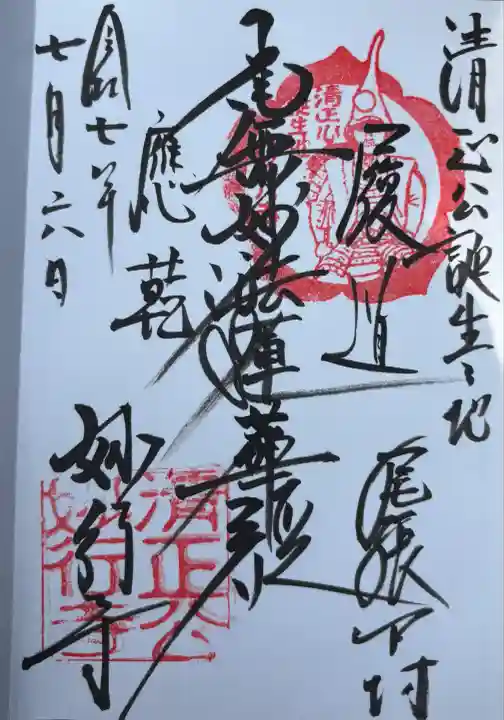 清正公誕生之地
尾張中村
履道
南無妙法蓮華経
應乾
七年
七月六日
妙行寺
清正公
妙行寺